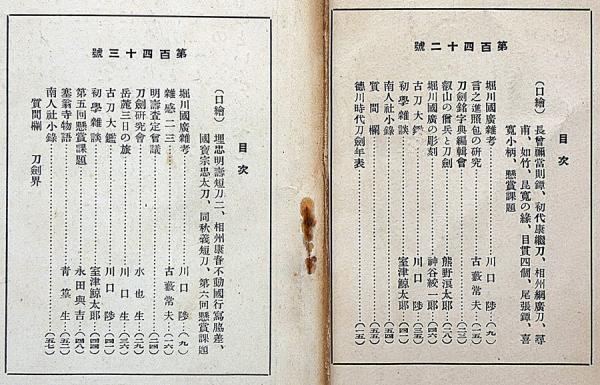 第百四十二號
目次
(口繪) 長曾禰當則鐔、初代康繼刀、相州綱廣刀、尋
甫、如竹、昆寬の緣、目貫四個、尾張鐔、喜
寬小柄、懸賞課題
堀川國廣雜考……川口陟…(九)
言之進照包の硏究……古藪常夫…(一六)
刀劍銘字典編輯會……(二三)
叡山の僧兵と刀劍……熊野滇太郎…(二八)
堀川國廣の彫刻……神谷紋一郎…(四〇)
古刀大鑑……川口陟…(三五)
初學雜談……室津鯨太郎…(五一)
南人社小錄……(五四)
質問欄……(五五)
德川時代刀劍年表……(一五)
第百四十三號
目次
(口繪) 埋忠明壽短刀二、相州康春不動國行寫脇差、
國寶宗忠太刀、同秋義短刀、第六回懸賞課題
堀川國廣雜考……川口陟…(九)
雜感二三……古藪常夫…(一六)
明壽査定會議……(二四)
刀劍硏究會……水也生…(二九)
岳麓三日の旅……川口生…(三六)
古刀大鑑……川口陟…(四一)
初學雜談……室津鯨太郎…(四四)
第五回懸賞課題……永田與吉…(四八)
塞翁寺物語……靑篁生…(五二)
南人社小錄……(五七)
質問欄 刀劍界